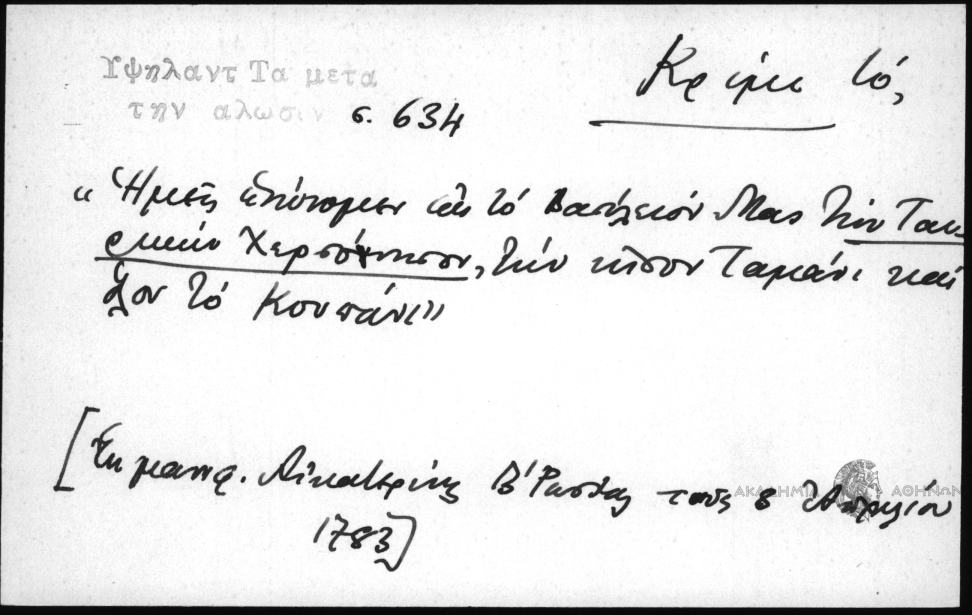 Υψηλαντ Τα μετα
την αλωσιν σ. 634
Κριμι τό,
"Ἡμεῖς ἑνώνομεν εἰς τό Βασίλειόν Μας τήν Ταυ-
ρικήν Χερσόνησον, τήν νῆσον Ταμάνι καί
ὅλον τό Κουπάνι"
[Ἐκ μανιφ. Αἰκατερίνης Β' Ρωσίας τῆς 8 Ἀπριλίου
1783]
ΑΚΑΔΗΜΙΑ ΑΘΗΝΩΝ